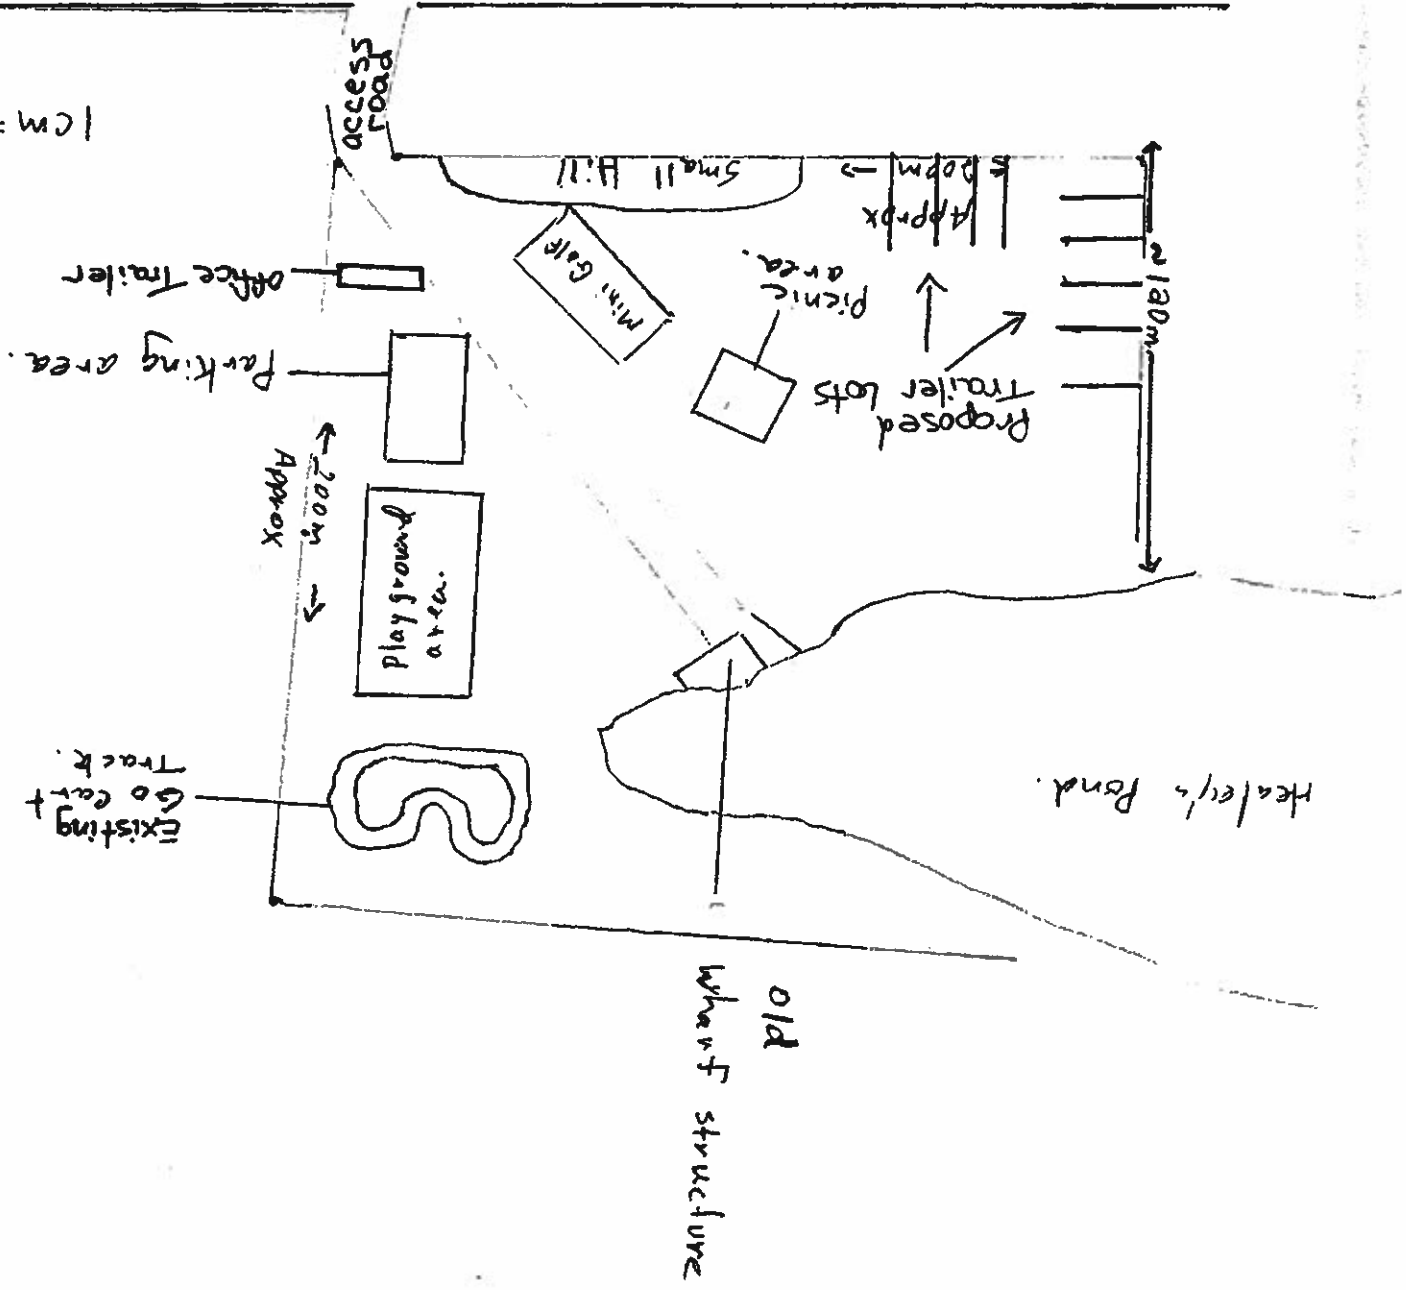 access
road
1cm =
Small Hill
← 200m →
Approx
~ 120m
Office Trailer
Mini Golf
Picnic
area.
Parking area.
Proposed
Trailer Lots
← 200m →
Approx
Playground
area.
Existing
Go cart
Track.
Healey's Pond.
old
wharf structure